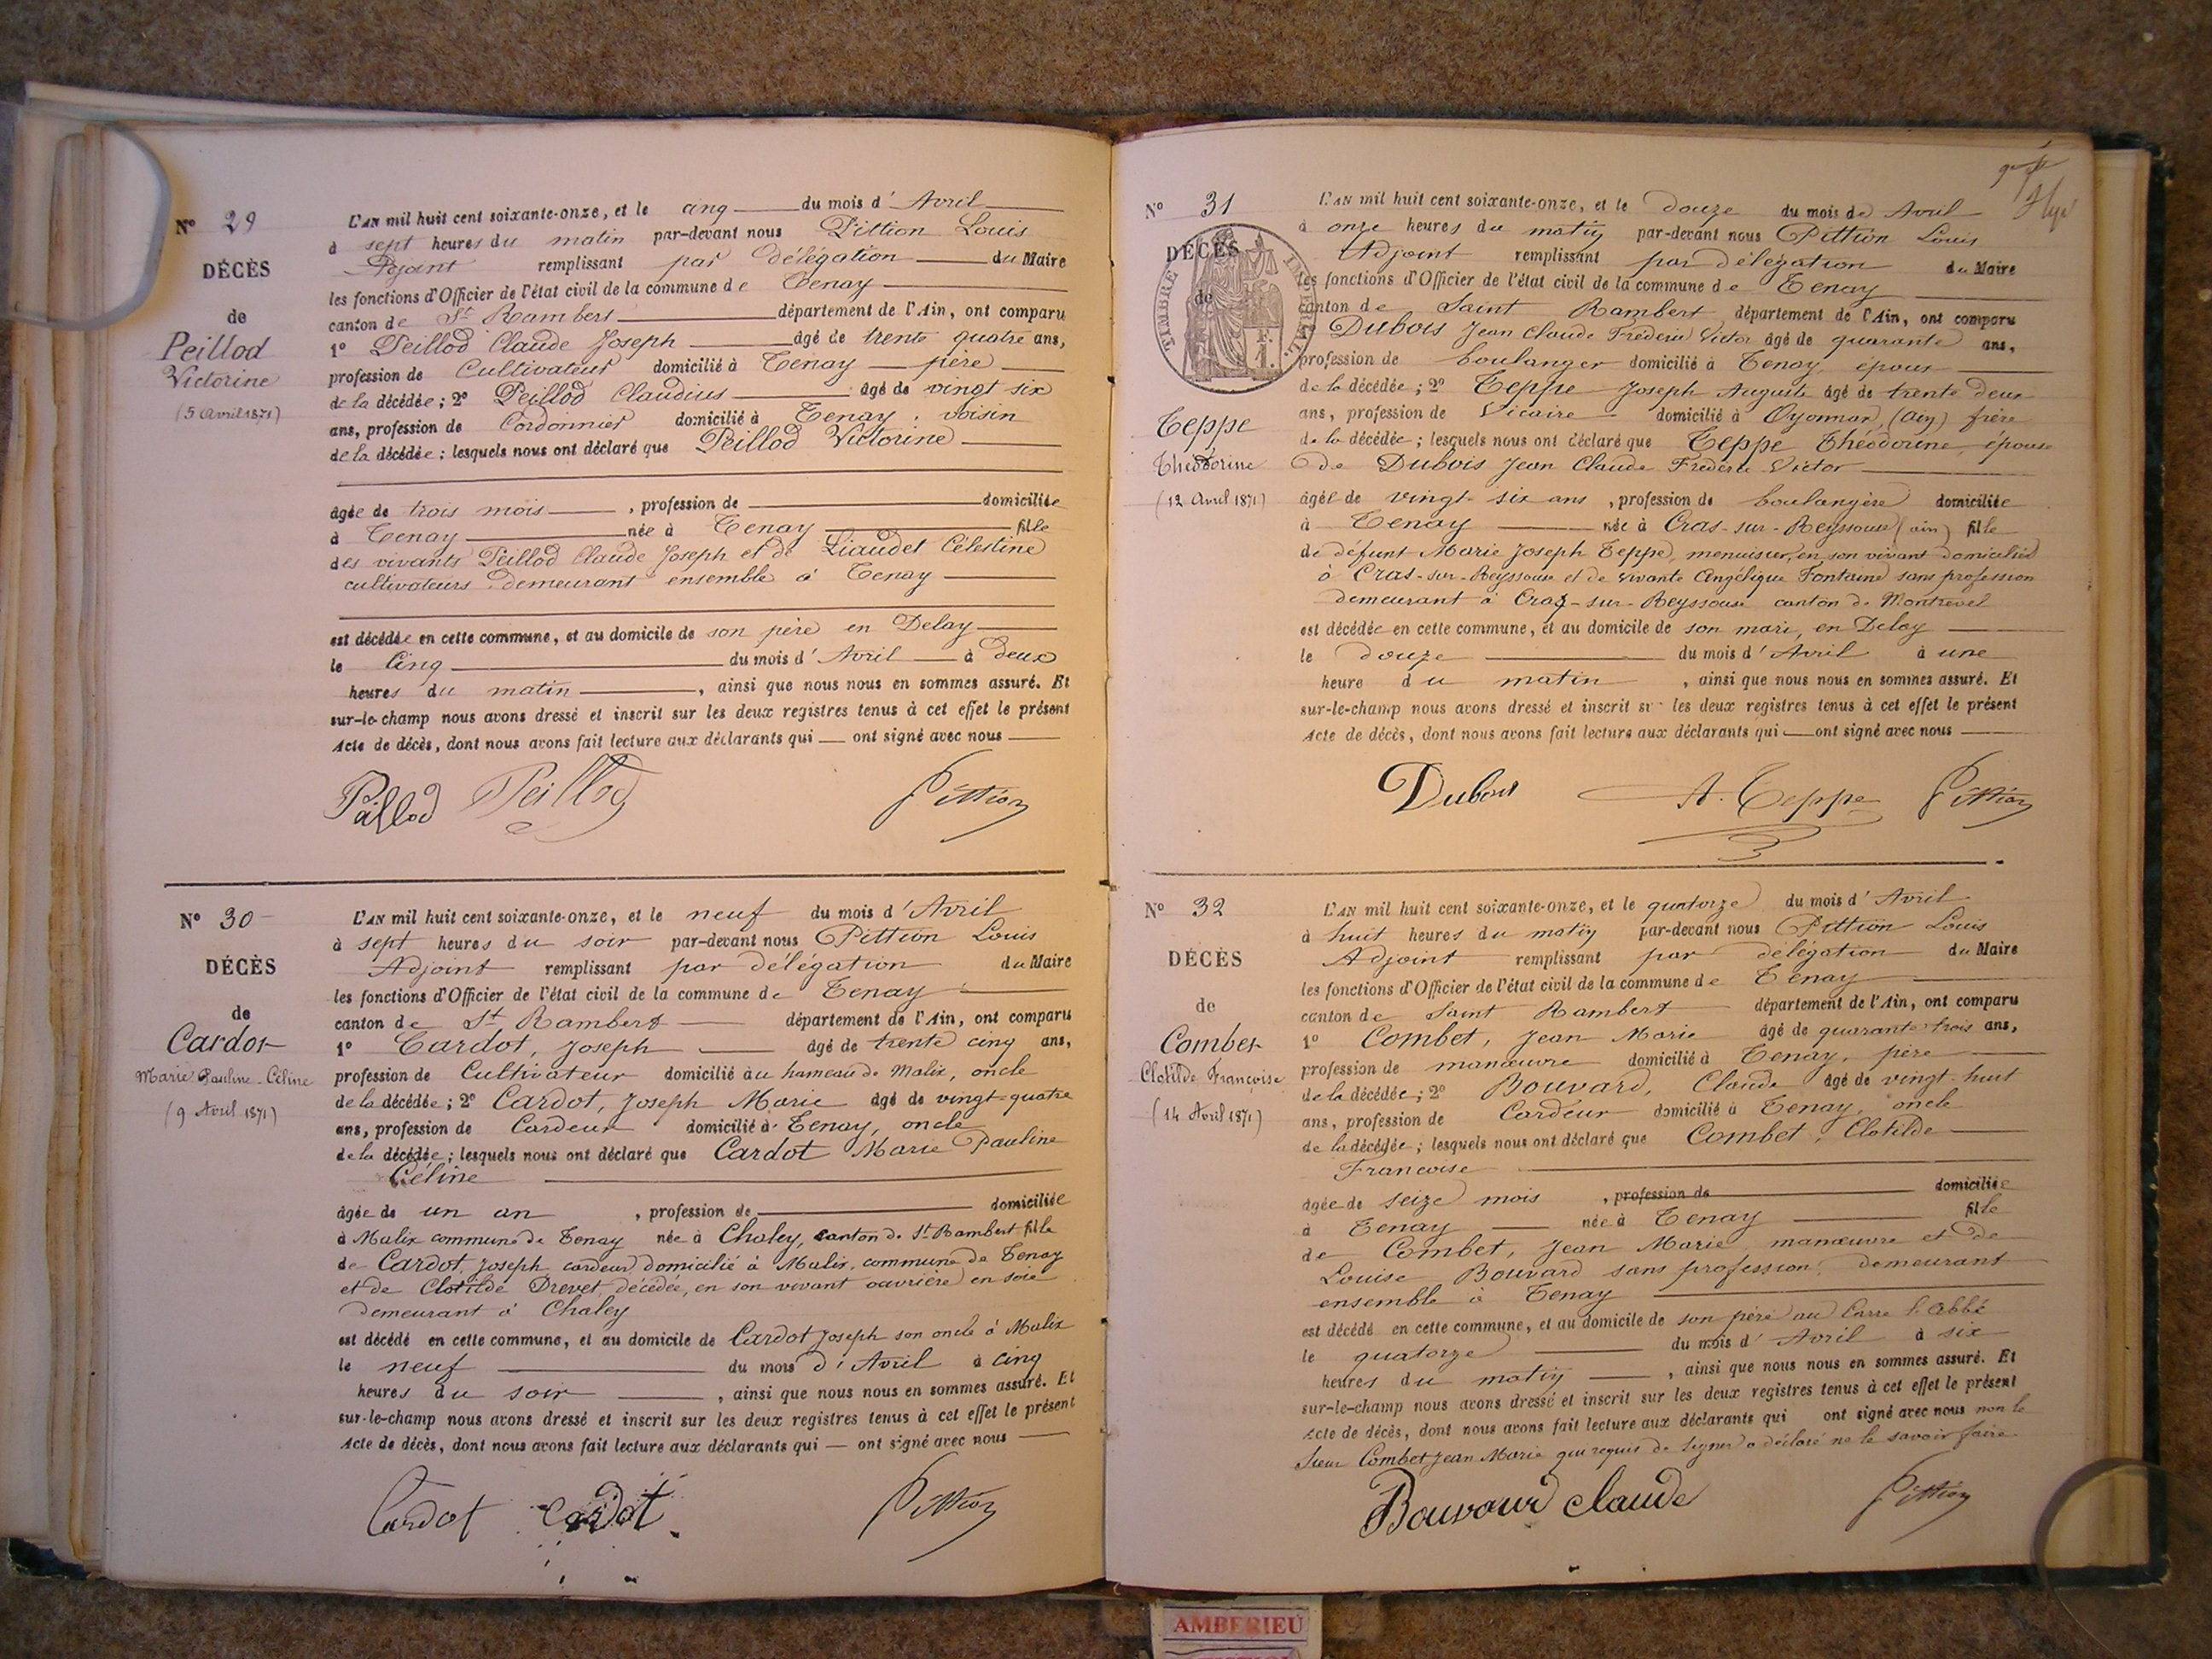 N° 29
DÉCÈS
de
Peillod
Victorine
(5 Avril 1871)
L'AN mil huit cent soixante-onze, et le cinq du mois d'Avril
à sept heures du matin par-devant nous Pittion Louis
Adjoint remplissant par délégation du Maire
les fonctions d'Officier de l'état civil de la commune de Tenay
canton de St Rambert département de l'Ain, ont comparu
1° Peillod Claude Joseph âgé de trente quatre ans,
profession de Cultivateur domicilié à Tenay père
de la décédée ; 2° Peillod Claudius âgé de vingt six
ans, profession de Cordonnier domicilié à Tenay, voisin
de la décédée ; lesquels nous ont déclaré que Peillod Victorine
âgée de trois mois , profession de domiciliée
à Tenay née à Tenay fille
des vivants Peillod Claude Joseph et de Liaudet Célestine
cultivateurs demeurant ensemble à Tenay
est décédée en cette commune, et au domicile de son père en Delay
le Cinq du mois d'Avril à deux
heures du matin , ainsi que nous nous en sommes assuré. Et
sur-le-champ nous avons dressé et inscrit sur les deux registres tenus à cet effet le présent
Acte de décès, dont nous avons fait lecture aux déclarants qui ont signé avec nous
Peillod Peillod Pittion
N° 30
DÉCÈS
de
Cardot
Marie Pauline Céline
(9 Avril 1871)
L'AN mil huit cent soixante-onze, et le neuf du mois d'Avril
à sept heures du soir par-devant nous Pittion Louis
Adjoint remplissant par délégation du Maire
les fonctions d'Officier de l'état civil de la commune de Tenay
canton de St Rambert département de l'Ain, ont comparu
1° Cardot, Joseph âgé de trente cinq ans,
profession de Cultivateur domicilié au hameau de Malix, oncle
de la décédée ; 2° Cardot, Joseph Marie âgé de vingt-quatre
ans, profession de Cardeur domicilié à Tenay, oncle
de la décédée ; lesquels nous ont déclaré que Cardot Marie Pauline
Céline
âgée de un an , profession de domiciliée
à Malix commune de Tenay née à Chaley, canton de St Rambert fille
de Cardot Joseph cardeur domicilié à Malix, commune de Tenay
et de Clotilde Drevet, décédée, en son vivant ouvrière en soie
demeurant à Chaley
est décédé en cette commune, et au domicile de Cardot Joseph son oncle à Malix
le neuf du mois d'Avril à cinq
heures du soir , ainsi que nous nous en sommes assuré. Et
sur-le-champ nous avons dressé et inscrit sur les deux registres tenus à cet effet le présent
Acte de décès, dont nous avons fait lecture aux déclarants qui ont signé avec nous
Cardot Cardot Pittion
N° 31
DÉCÈS
de
TIMBRE IMPÉRIAL
Teppe
Théodorine
(12 Avril 1871)
L'AN mil huit cent soixante-onze, et le douze du mois de Avril
à onze heures du matin par-devant nous Pittion Louis
Adjoint remplissant par délégation du Maire
les fonctions d'Officier de l'état civil de la commune de Tenay
canton de Saint Rambert département de l'Ain, ont comparu
Dubois Jean Claude Frédéric Victor âgé de quarante ans,
profession de boulanger domicilié à Tenay, époux
de la décédée ; 2° Teppe Joseph Auguste âgé de trente deux
ans, profession de Vicaire domicilié à Oyonnax, (Ain) frère
de la décédée ; lesquels nous ont déclaré que Teppe Théodorine, épouse
de Dubois Jean Claude Frédéric Victor
âgée de vingt-six ans , profession de boulangère domiciliée
à Tenay née à Cras-sur-Reyssouse (ain) fille
de défunt Marie Joseph Teppe, menuisier, en son vivant domicilié
à Cras-sur-Reyssouse et de vivante Angélique Fontaine sans profession
demeurant à Cras-sur-Reyssouse canton de Montrevel
est décédée en cette commune, et au domicile de son mari, en Delay
le douze du mois d'Avril à une
heure du matin , ainsi que nous nous en sommes assuré. Et
sur-le-champ nous avons dressé et inscrit sur les deux registres tenus à cet effet le présent
Acte de décès, dont nous avons fait lecture aux déclarants qui ont signé avec nous
Dubois A. Teppe Pittion
N° 32
DÉCÈS
de
Combet
Clotilde Françoise
(14 Avril 1871)
L'AN mil huit cent soixante-onze, et le quatorze du mois d'Avril
à huit heures du matin par-devant nous Pittion Louis
Adjoint remplissant par délégation du Maire
les fonctions d'Officier de l'état civil de la commune de Tenay
canton de Saint Rambert département de l'Ain, ont comparu
1° Combet, Jean Marie âgé de quarante trois ans,
profession de manœuvre domicilié à Tenay, père
de la décédée ; 2° Bouvard, Claude âgé de vingt-huit
ans, profession de Cardeur domicilié à Tenay, oncle
de la décédée ; lesquels nous ont déclaré que Combet, Clotilde
Françoise
âgée de seize mois , profession de domiciliée
à Tenay née à Tenay fille
de Combet, Jean Marie, manœuvre et de
Louise Bouvard sans profession, demeurant
ensemble à Tenay
est décédé en cette commune, et au domicile de son père au Carre l'Abbé
le quatorze du mois d'Avril à six
heures du matin , ainsi que nous nous en sommes assuré. Et
sur-le-champ nous avons dressé et inscrit sur les deux registres tenus à cet effet le présent
Acte de décès, dont nous avons fait lecture aux déclarants qui ont signé avec nous non le
Sieur Combet Jean Marie qui requis de signer a déclaré ne le savoir faire
Bouvard claude Pittion
AMBERIEU